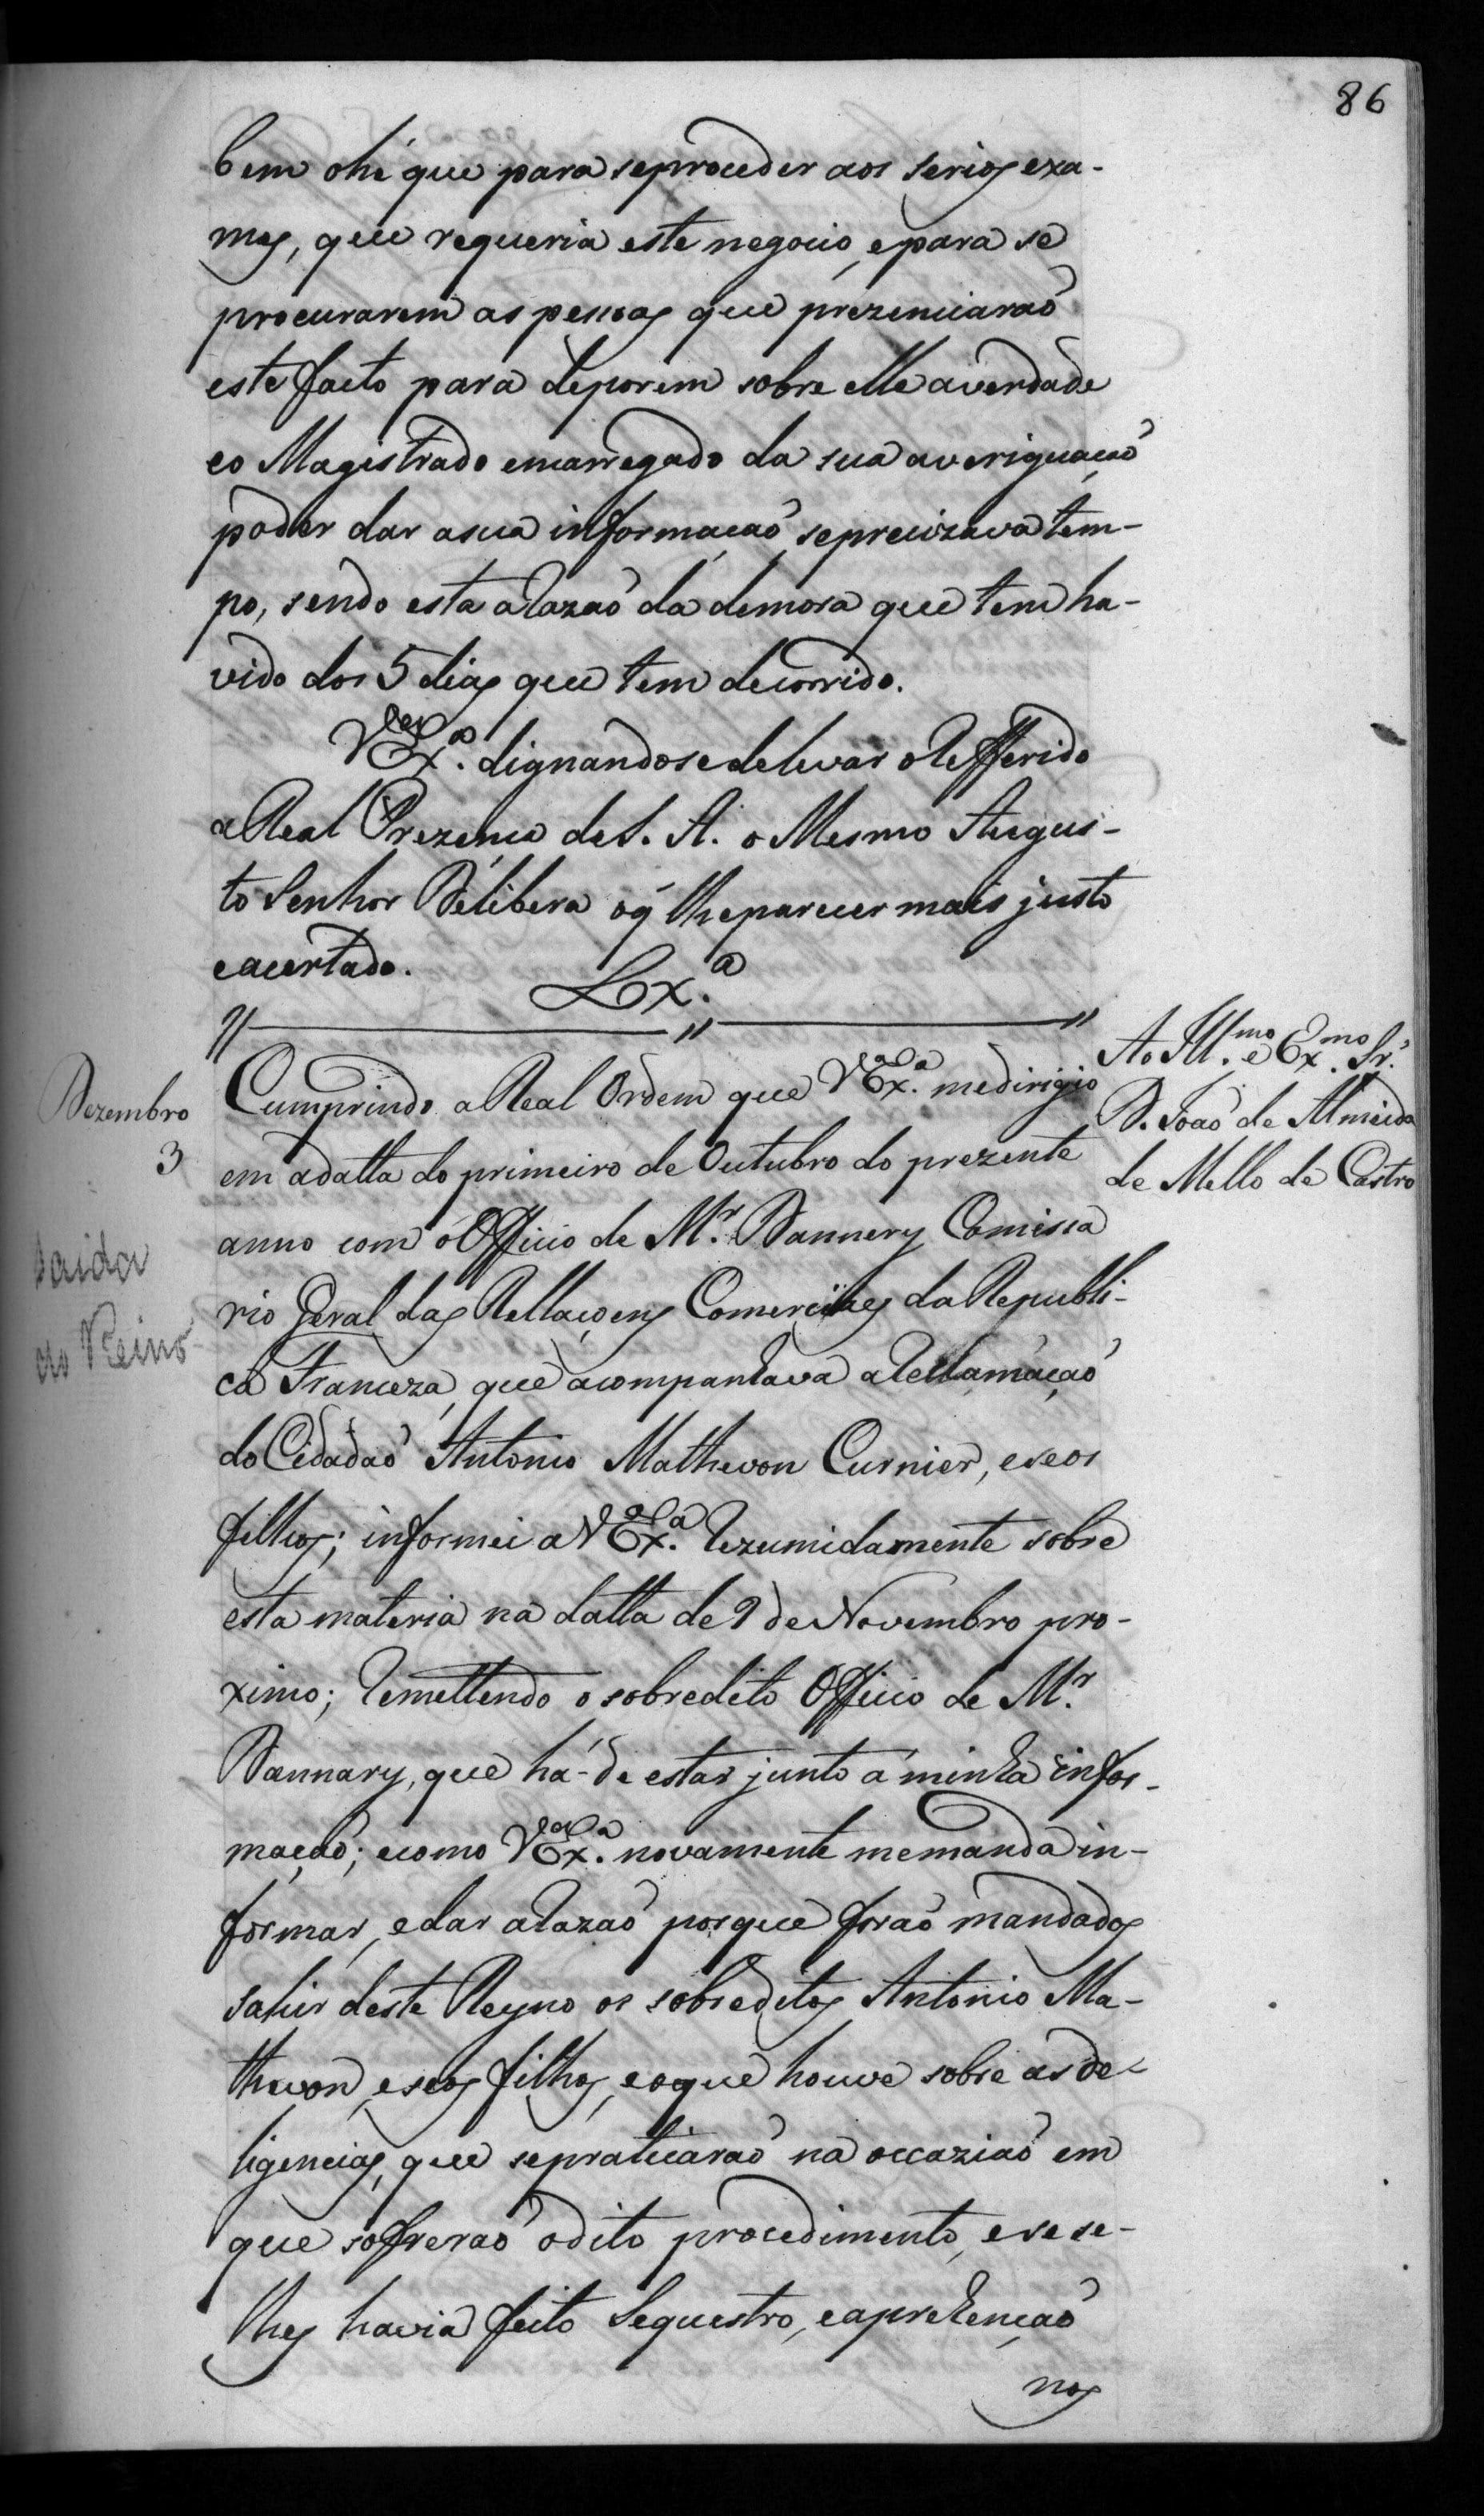 86
bem o hé que para se proceder aos serios exa-
mes, que requeria este negocio, e para se
procurarem as pessoas que prezenciaraõ
este facto para deporem sobre elle a verdade
e o Magistrado encarregado da sua averiguaçaõ
poder dar a sua informaçaõ, se precizava tem-
po, sendo esta a razaõ da demora que tem ha-
vido dos 5 dias que tem decorrido.
V Ex.ª dignandose de levar o refferido
a Real Prezença de S. A. o Mesmo Augus-
to Senhor Delibera o q̃ lhe parecer mais justo
e acertado.
Lx.ª
Dezembro
3
Ao Ill.mo e Ex.mo Sr.
D. Joaõ de Almeida
de Mello de Castro
saida
do Reino
Cumprindo a Real Ordem que V Ex.ª me dirigio
em a datta do primeiro de Outubro do prezente
anno com o Officio de M.r Dannery Comissa
rio Geral das Rellaçoens Comerciaes da Republi-
ca Franceza, que acompanhava a reclamaçaõ
do Cidadaõ Antonio Mathevon Curnier, e seos
filhos; informei a V Ex.ª rezumidamente sobre
esta materia na datta de 9 de Novembro pro-
ximo; remettendo o sobredito Officio de M.r
Dannary, que há-de estar junto á minha infor-
maçaõ; e como V Ex.ª novamente me manda in-
formar, e dar a razaõ porque foraõ mandados
sahir deste Reyno os sobreditos Antonio Ma-
thevon, e seos filhos, e o que houve sobre as de-
ligencias, que se praticaraõ na occaziaõ em
que soffreraõ o dito procedimento, e se se-
lhes havia feito Sequestro, e aprehençaõ
nos